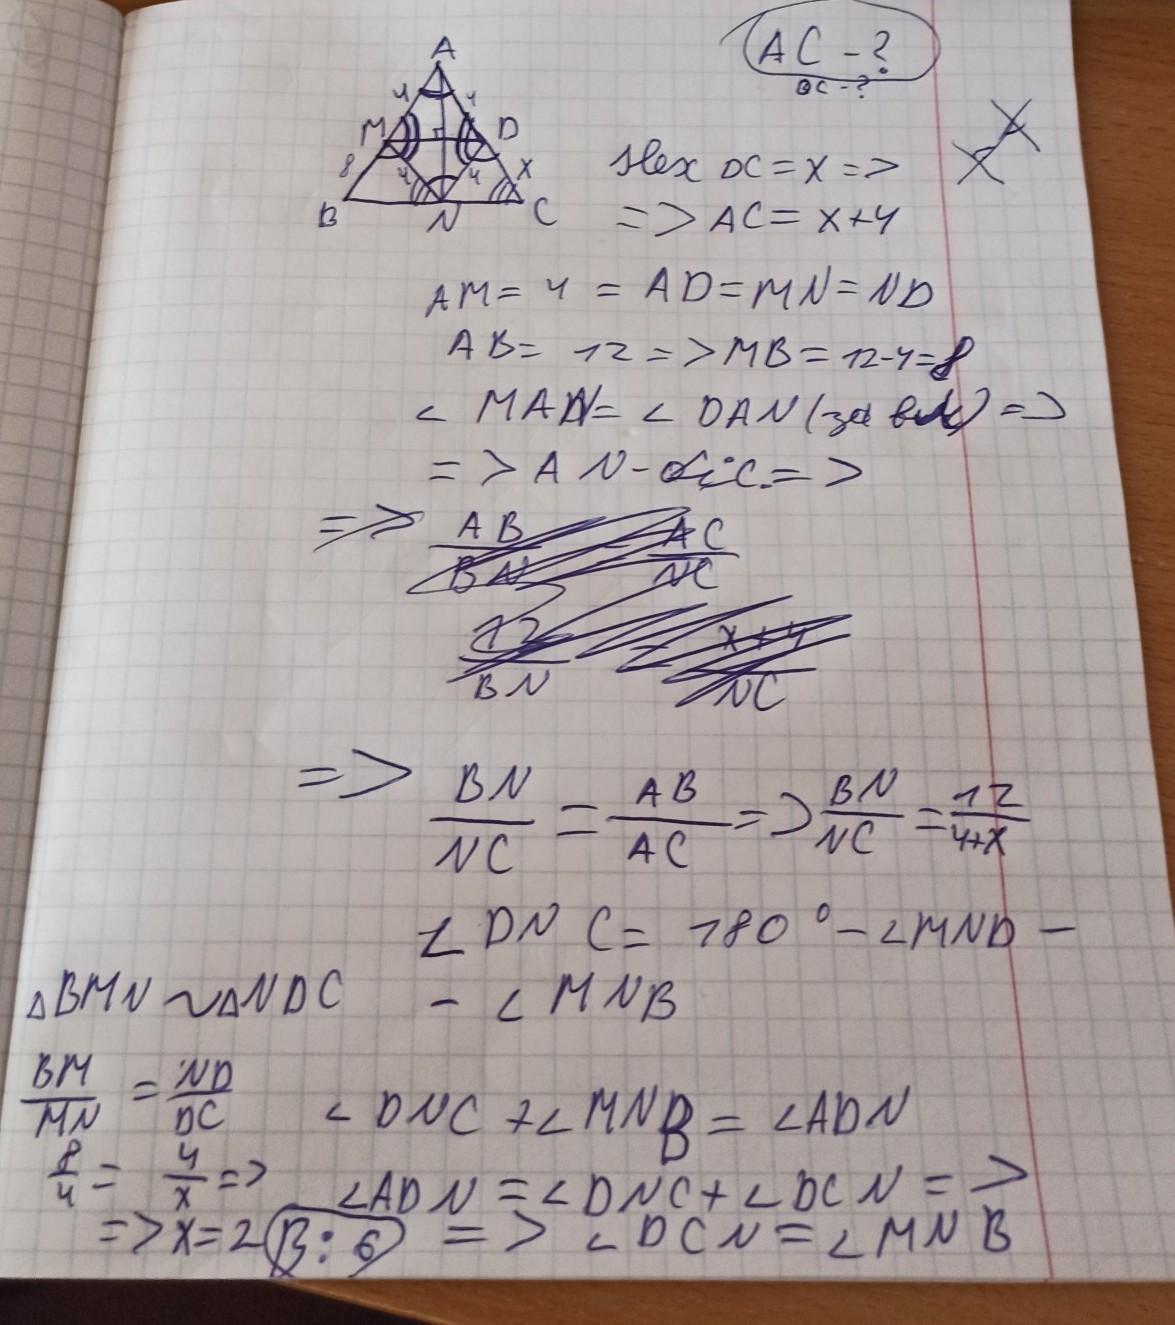 AC - ?
DC - ?
A
4 4
M D
8 4 4 x
B N C
Нех DC = x =>
=> AC = x+4
AM = 4 = AD = MN = ND
AB = 12 => MB = 12-4=8
∠ MAN = ∠ DAN (за вл) =>
=> AN - біс. =>
=> AB/BN = AC/NC
12/BN = x+4/NC
=> BN/NC = AB/AC => BN/NC = 12/4+x
∠ DNC = 180° - ∠MND -
- ∠ MNB
△BMN ~ △NDC
BM/MN = ND/DC
∠ DNC + ∠ MNB = ∠ADN
8/4 = 4/x =>
∠ADN = ∠DNC + ∠DCN =>
=> x=2 В: 6
=> ∠DCN = ∠MNB